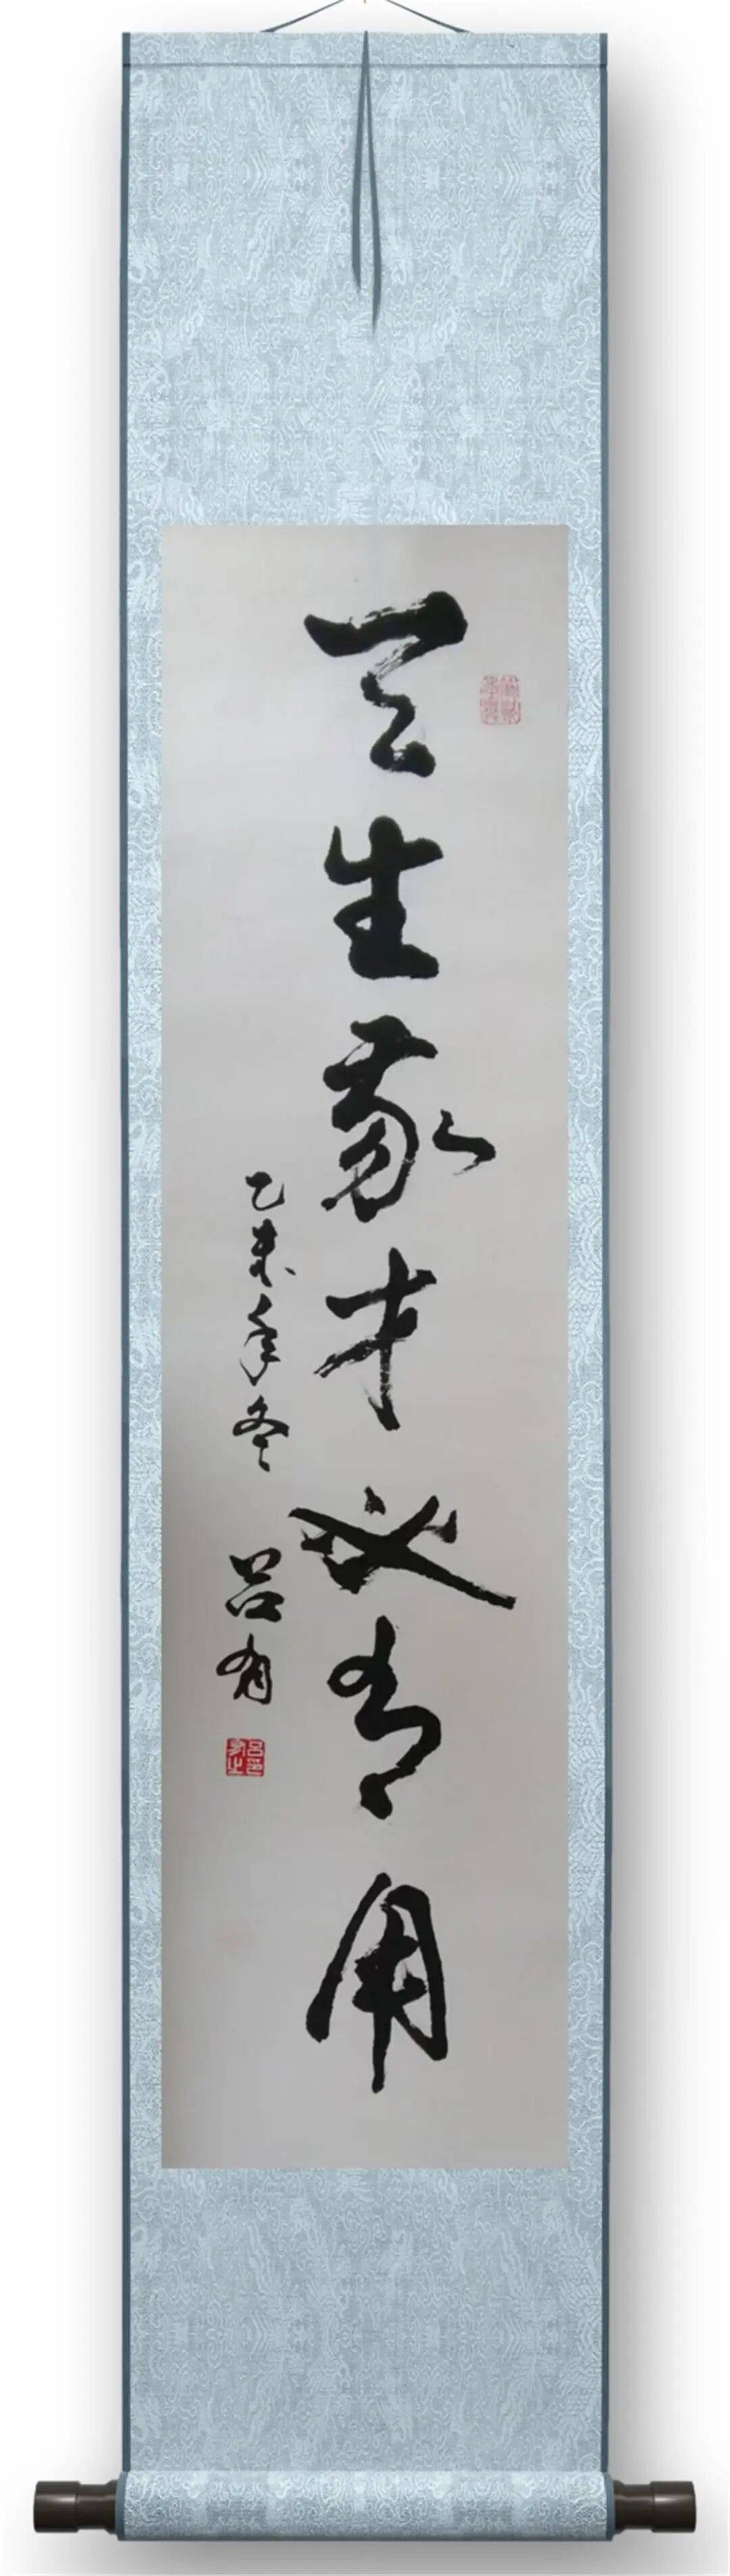 天生我才必有用
乙未年冬 吕有